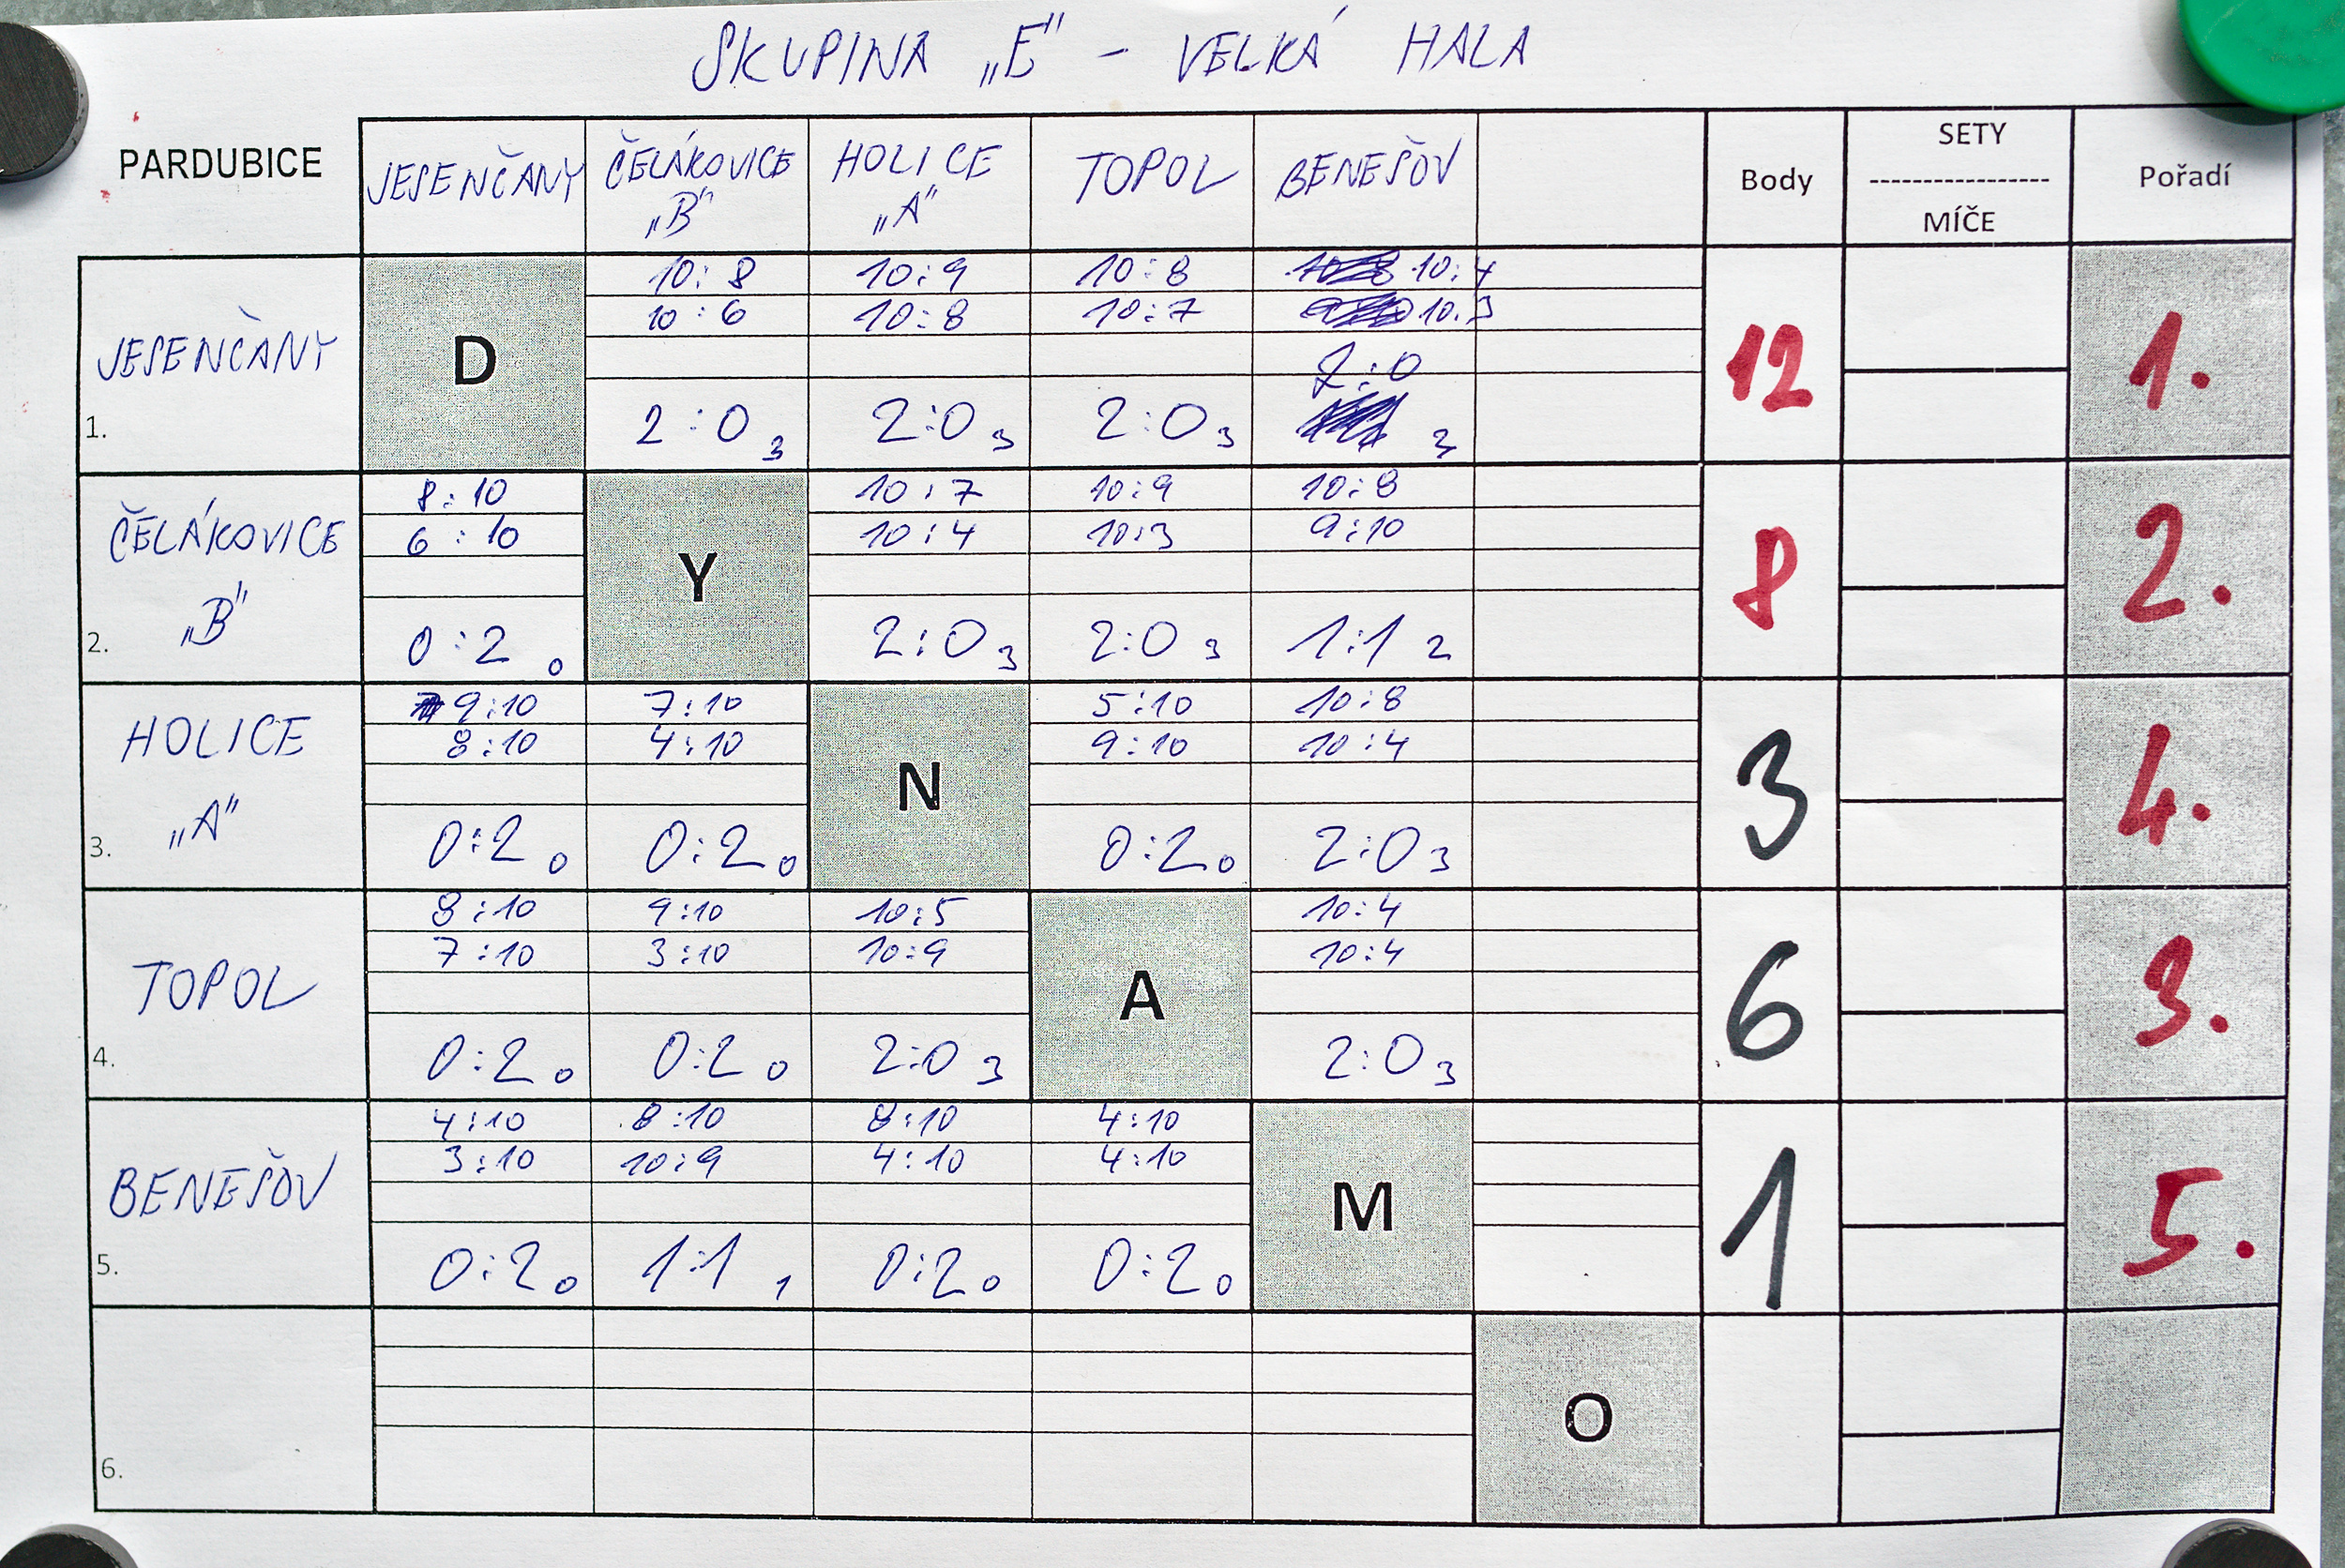 SKUPINA „E" - VELKÁ HALA
PARDUBICE JESENČANY ČELÁKOVICE „B" HOLICE „A" TOPOL BENEŠOV Body SETY MÍČE Pořadí
1. JESENČANY D
10:8 10:9 10:8 10:4
10:6 10:8 10:7 10:3
2:0
2:0 3 2:0 3 2:0 3 3
12 1.
2. ČELÁKOVICE „B" Y
8:10 10:7 10:9 10:8
6:10 10:4 10:3 9:10
0:2 0 2:0 3 2:0 3 1:1 2
8 2.
3. HOLICE „A" N
9:10 7:10 5:10 10:8
8:10 4:10 9:10 10:4
0:2 0 0:2 0 0:2 0 2:0 3
3 4.
4. TOPOL A
8:10 9:10 10:5 10:4
7:10 3:10 10:9 10:4
0:2 0 0:2 0 2:0 3 2:0 3
6 3.
5. BENEŠOV M
4:10 8:10 8:10 4:10
3:10 10:9 4:10 4:10
0:2 0 1:1 1 0:2 0 0:2 0
1 5.
6. O